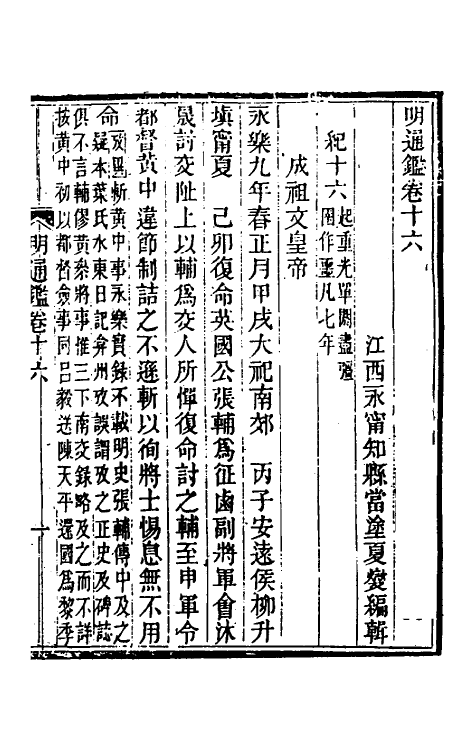 明通鑑卷十六
江西永甯知縣當塗夏燮編輯
紀十六起重光單閼盡彊
圉作噩凡七年
成祖文皇帝
永樂九年春正月甲戌大祀南郊　丙子安遠侯柳升
塡甯夏　己卯復命英國公張輔爲征鹵副將軍會沐
晟討交阯上以輔爲交人所憚復命討之輔至申軍令
都督黃中違節制詰之不遜斬以徇將士惕息無不用
命攷異斬黃中事永樂實錄不載明史張輔傳中及之
疑本葉氏水東日記弇州攷誤謂攷之正史及碑誌
俱不言輔僇黃叅將事惟三下南交錄略及之而不詳
按黃中初以都督僉事同呂毅送陳天平還國爲黎季
明通鑑卷十六
一